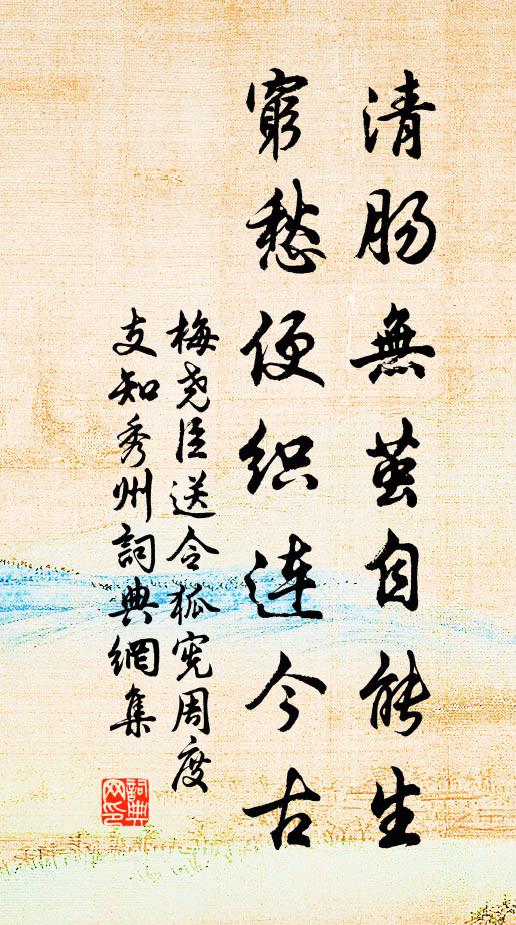 清肠無茧自能生
窮愁便织連今古
梅尧臣送令狐宪周度
支知秀州詞典網集
詞典
网印